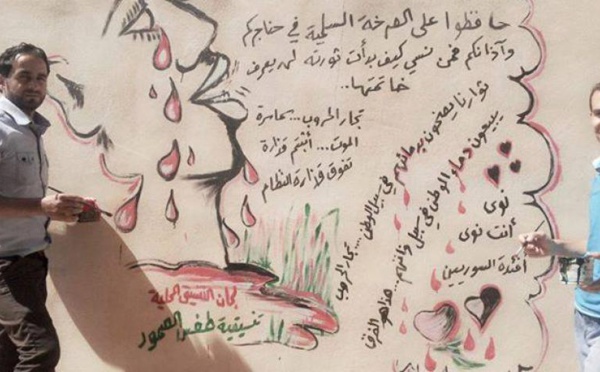 حافظوا على الصرخة السلمية في حناجركم
وآذانكم فمن نسي كيف بدأت ثورته لن يعرف
خاتمتها..
تجار الحروب.. سماسرة
الموت... أنتم قذارة
تفوق قذارة النظام
ثوارنا يضحون بدمائهم في سبيل الوطن... تجار الحروب
يبيعون دماء الوطن في سبيل ذاتهم... هذا هو الفرق
نوى
أنت نوى
أفئدة السوريين
لجان التنسيق المحلية
تنسيقية طفس الصمود